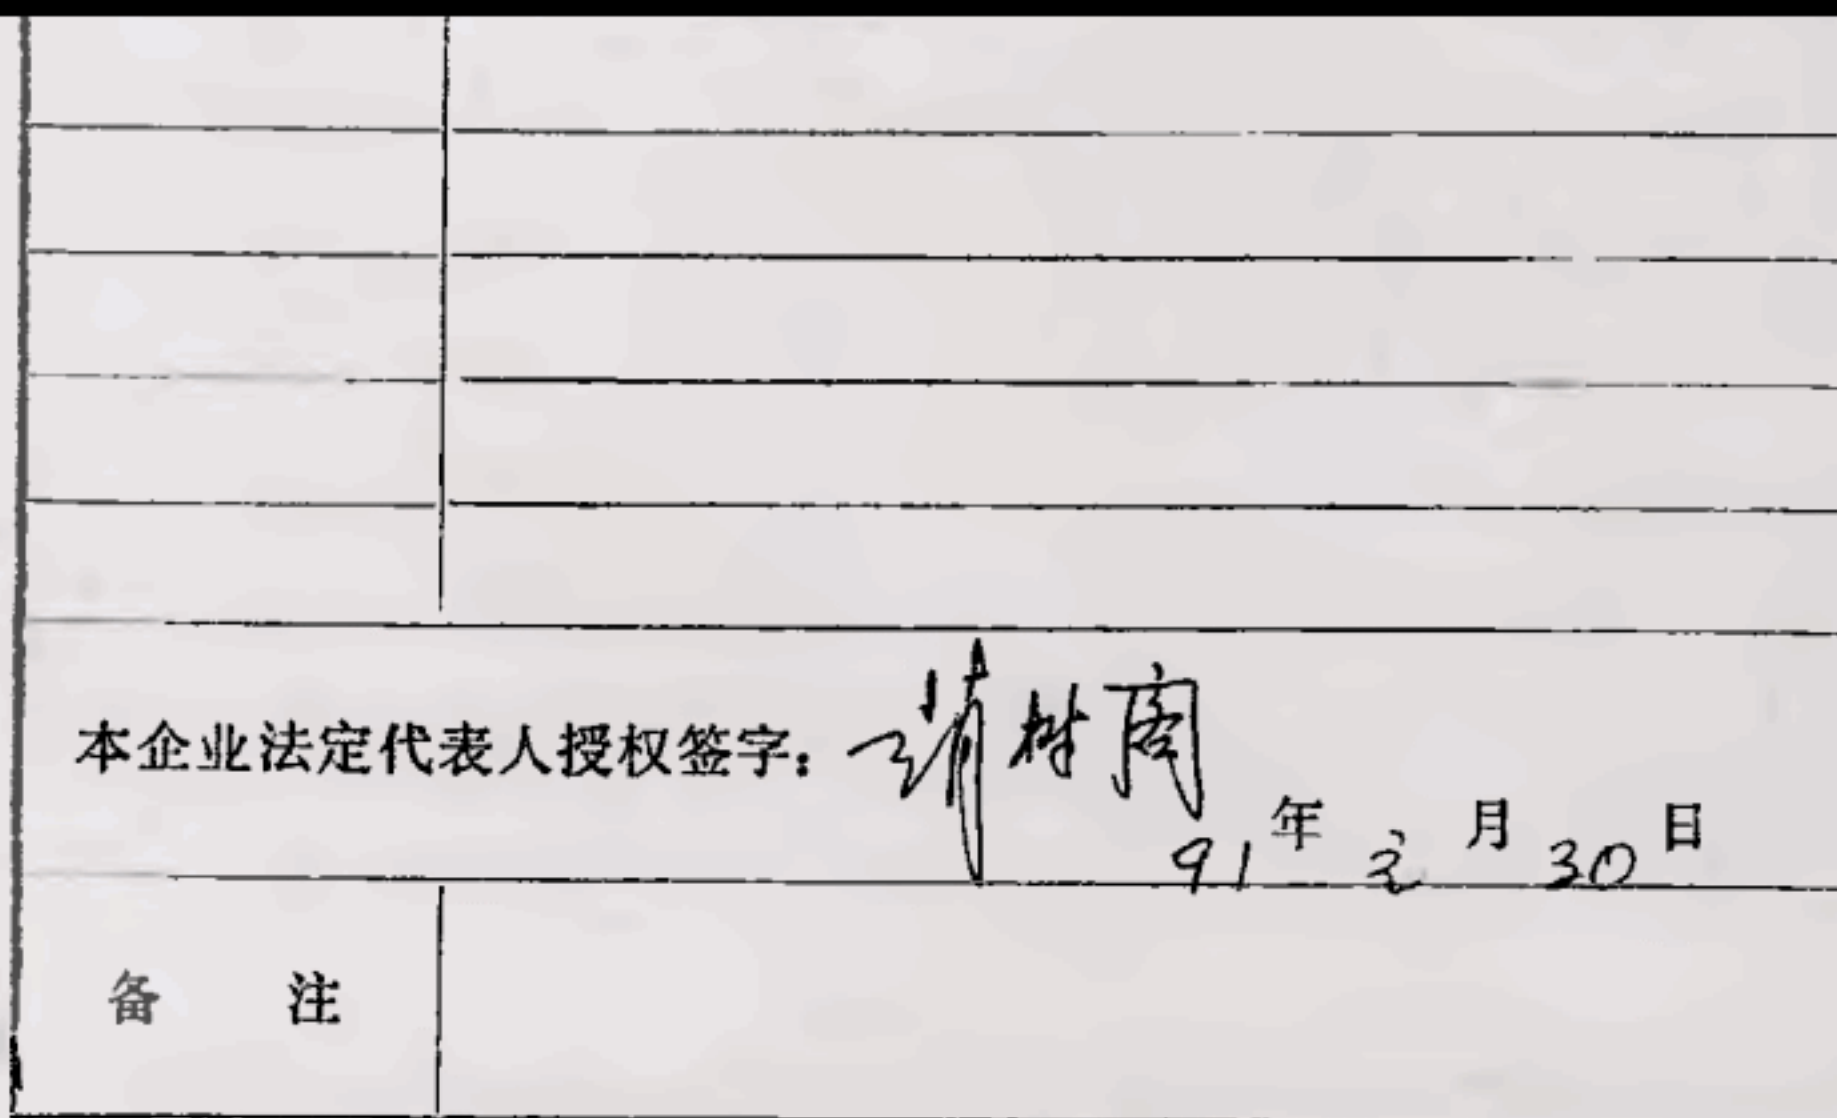 本企业法定代表人授权签字：
91年元月30日
备 注